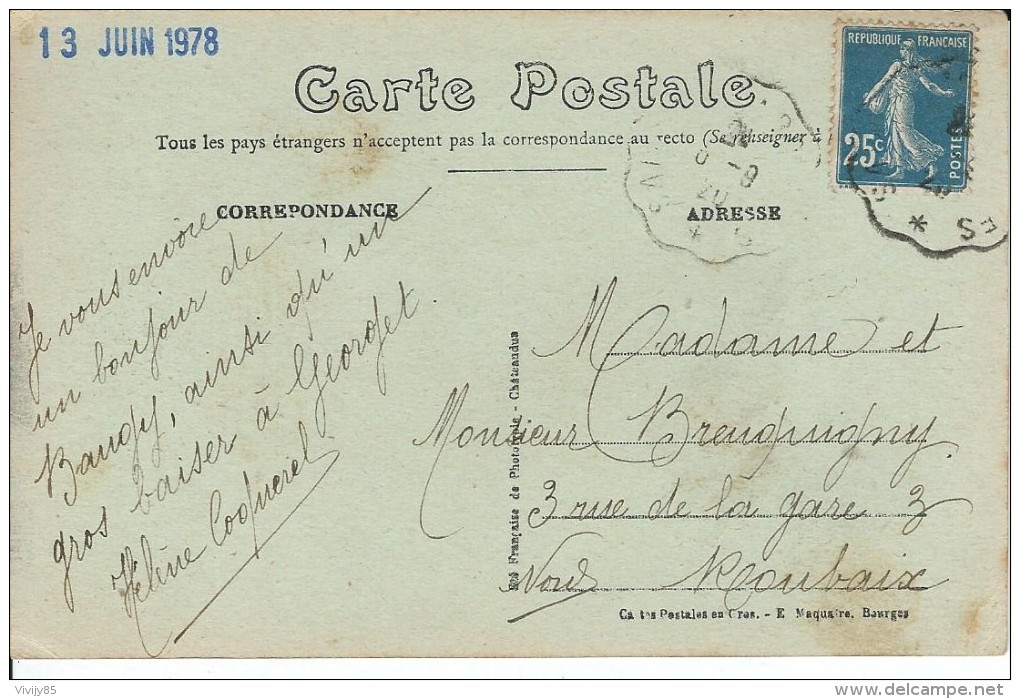 13 JUIN 1978
Carte Postale
REPUBLIQUE FRANÇAISE
25c
POSTES
Tous les pays étrangers n'acceptent pas la correspondance au recto (Se renseigner à
CORREPONDANCE
ADRESSE
Je vous envoie
un bonjour de
Baugy, ainsi qu'un
gros baiser à Georget
Hélène Coquerel
Sté Française de Phototypie - Châteaudun
Madame et
Monsieur Breuquigny
3 rue de la gare 3
Nord Roubaix
Ca tes Postales en Gros. - E Maquaire, Bourges
Vivijy85
delcampe.net